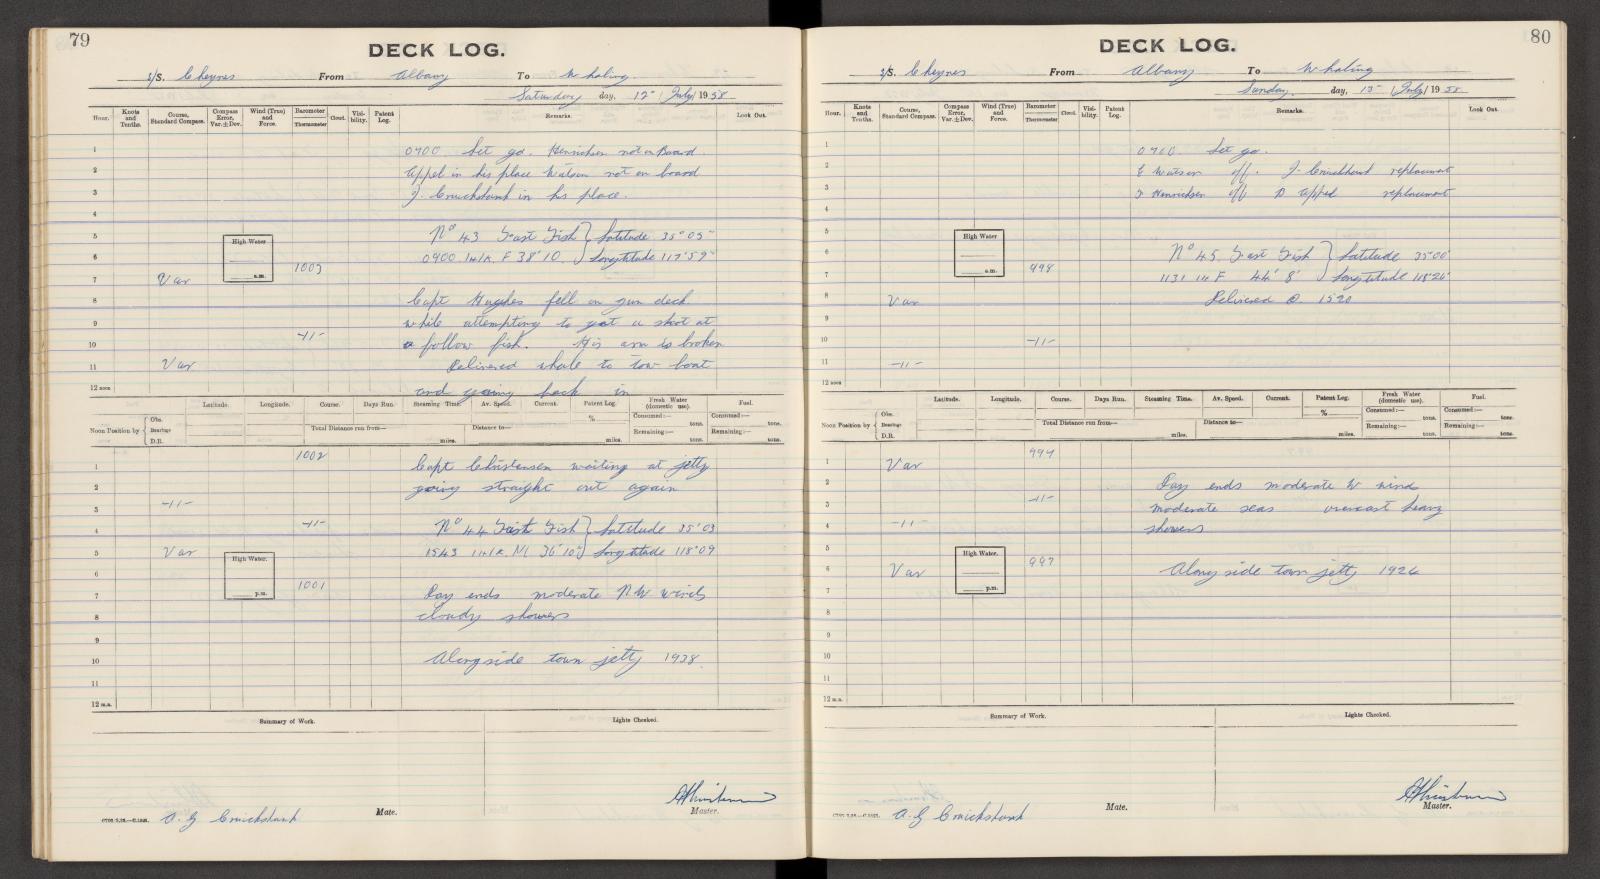 79
DECK LOG.
S/S. Cheynes From Albany To Whaling.
Saturday day, 12th July 1958
Hour. Knots and Tenths. Course, Standard Compass. Compass Error, Var. ± Dev. Wind (True) and Force. Barometer Thermometer Cloud. Visibility. Patent Log. Remarks. Look Out.
1 0700 Let go. Henriksen not on Board.
2 Appel in his place Watson not on board
3 J. Cruickshank in his place.
4
5 No 43 Fast Fish } Latitude 35°05"
High Water
6 0900 F 38' 10. Longtitude 117°59"
1003
a.m.
7 Var
8 Capt Hughes fell on gun deck.
9 while attempting to get a shot at
10 -11- a follow fish. His arm is broken
11 Var Delivered whale to tow boat
12 noon and going back in
Latitude. Longitude. Course. Days Run. Steaming Time. Av. Speed. Current. Patent Log. Fresh Water (domestic use). Fuel.
Noon Position by { Obs. Bearings D.R. Total Distance run from— miles. Distance to— miles. % Consumed:— tons. Remaining:— tons. Consumed:— tons. Remaining:— tons.
1002
1 Capt Christensen waiting at jetty
2 going straight out again
3 -11-
4 -11- No 44 Fast Fish } Latitude 35°03
5 Var 1543 M 36'10" Longtitude 118°09
High Water.
6 1001
p.m.
7 Day ends moderate NW winds
8 cloudy showers
9
10 Alongside town jetty 1938.
11
12 m.n.
Summary of Work. Lights Checked.
A. G Cruickshank Mate. Master.
80
DECK LOG.
S/S. Cheynes From Albany To Whaling.
Sunday. day, 13th July 1958.
Hour. Knots and Tenths. Course, Standard Compass. Compass Error, Var. ± Dev. Wind (True) and Force. Barometer Thermometer Cloud. Visibility. Patent Log. Remarks. Look Out.
1 0700. Let go.
2 E Watson off. J. Cruickshank replacement
3 Henricksen off D Appel replacement
4
5
High Water
6 No 45. Fast Fish } Latitude 35°00'
998
a.m.
7 1131 F 44' 8' Longtitude 118°26'
8 Var Delivered @ 1520
9
10 -11-
11 -11-
12 noon
Latitude. Longitude. Course. Days Run. Steaming Time. Av. Speed. Current. Patent Log. Fresh Water (domestic use). Fuel.
Noon Position by { Obs. Bearings D.R. Total Distance run from— miles. Distance to— miles. % Consumed:— tons. Remaining:— tons. Consumed:— tons. Remaining:— tons.
1 Var 997
2 Day ends moderate W wind
3 -11- moderate seas overcast heavy
4 -11- showers
5
High Water.
997
6 Var Alongside town jetty 1926
p.m.
7
8
9
10
11
12 m.n.
Summary of Work. Lights Checked.
A. G Cruickshank Mate. Master.